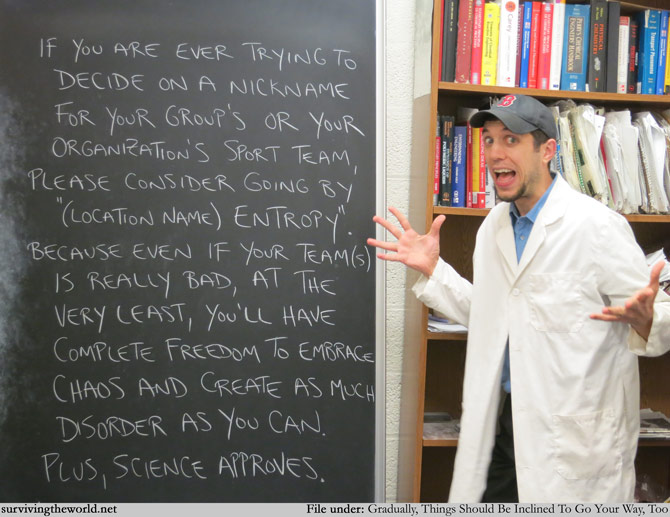 IF YOU ARE EVER TRYING TO
DECIDE ON A NICKNAME
FOR YOUR GROUP'S OR YOUR
ORGANIZATION'S SPORT TEAM,
PLEASE CONSIDER GOING BY
"(LOCATION NAME) ENTROPY".
BECAUSE EVEN IF YOUR TEAM(S)
IS REALLY BAD, AT THE
VERY LEAST, YOU'LL HAVE
COMPLETE FREEDOM TO EMBRACE
CHAOS AND CREATE AS MUCH
DISORDER AS YOU CAN.
PLUS, SCIENCE APPROVES.
PERRY'S CHEMICAL ENGINEERS' HANDBOOK
Carey
B
survivingtheworld.net
File under: Gradually, Things Should Be Inclined To Go Your Way, Too